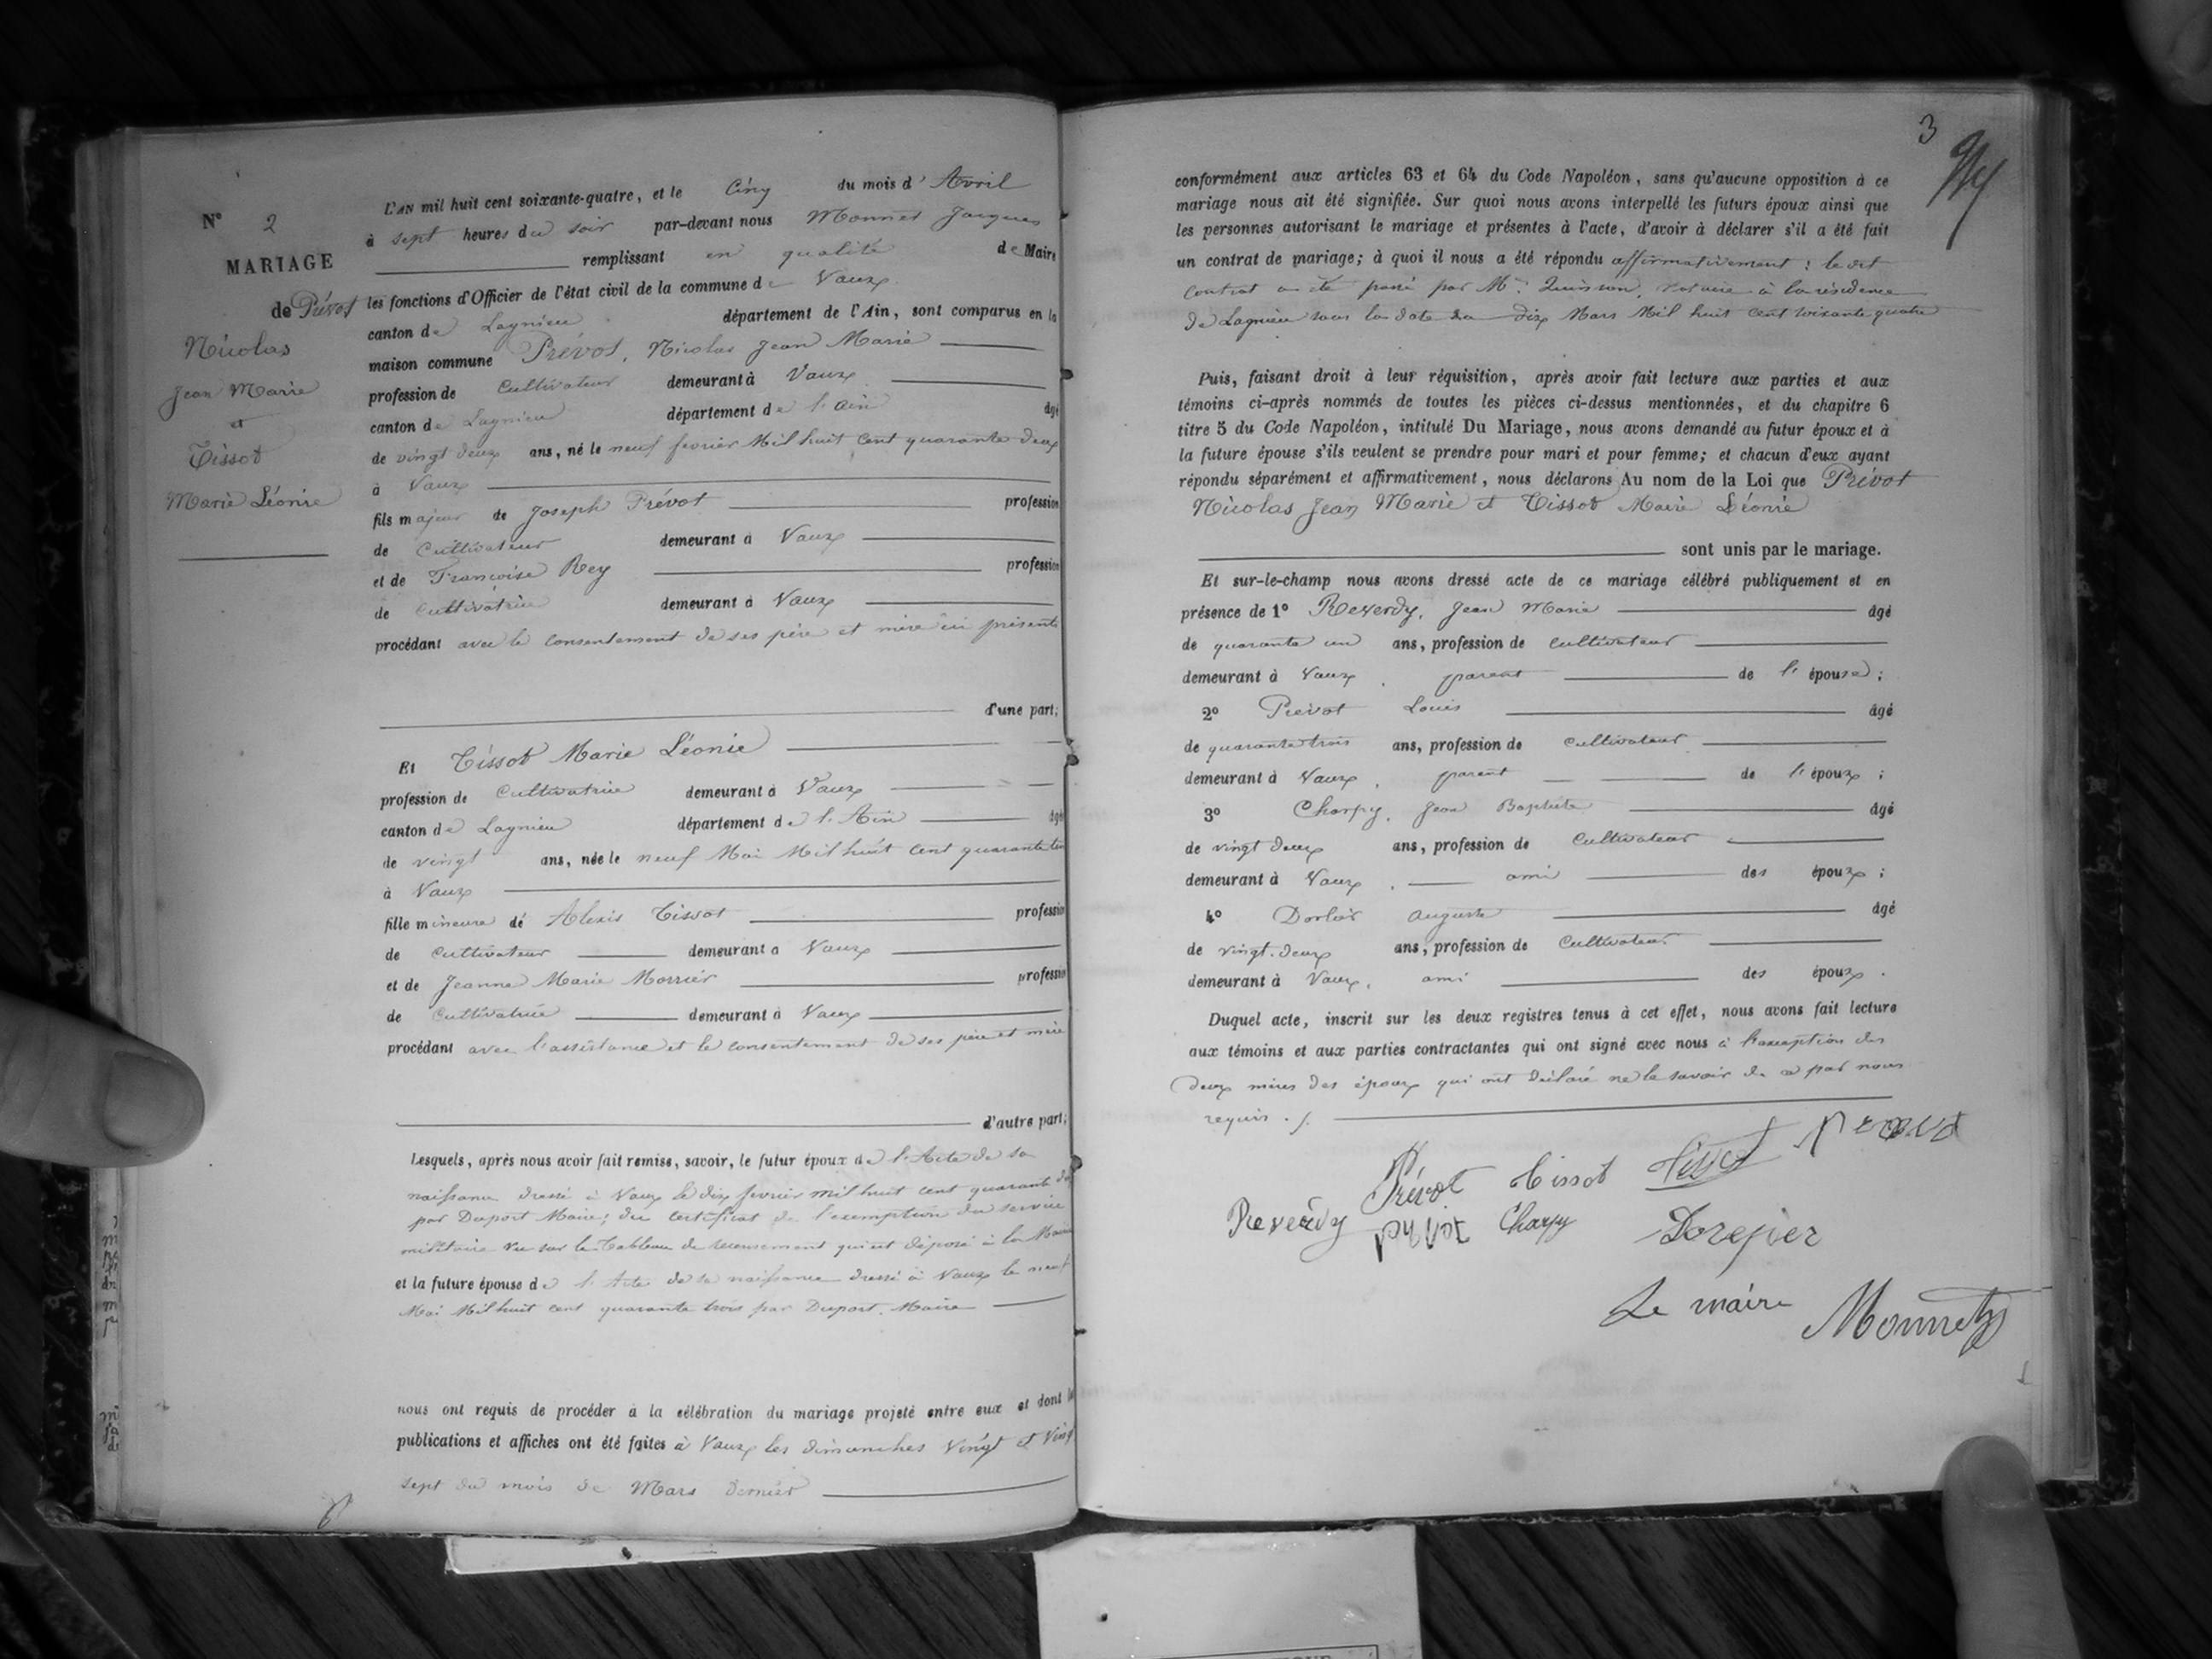 N° 2
MARIAGE
de Prévot
Nicolas
Jean Marie
et
Tissot
Marie Léonie
L'AN mil huit cent soixante-quatre, et le Cinq du mois d'Avril
à sept heures du soir par-devant nous Monnet Jacques
remplissant en qualité de Maire
les fonctions d'Officier de l'état civil de la commune de Vaux
canton de Lagnieu département de l'Ain, sont comparus en la
maison commune Prévot, Nicolas Jean Marie
profession de Cultivateur demeurant à Vaux
canton de Lagnieu département de l'Ain âgé
de vingt deux ans, né le neuf février Mil huit cent quarante deux
à Vaux
fils majeur de Joseph Prévot profession
de Cultivateur demeurant à Vaux
et de Françoise Rey profession
de Cultivatrice demeurant à Vaux
procédant avec le consentement de ses père et mère ici présents
d'une part;
Et Tissot Marie Léonie
profession de Cultivatrice demeurant à Vaux
canton de Lagnieu département de l'Ain âgé
de vingt ans, née le neuf Mai Mil huit cent quarante
à Vaux
fille mineure de Alexis Tissot profession
de Cultivateur demeurant à Vaux
et de Jeanne Marie Morrier profession
de Cultivatrice demeurant à Vaux
procédant avec l'assistance et le consentement de ses père et mère
d'autre part;
Lesquels, après nous avoir fait remise, savoir, le futur époux de l'Acte de sa
naissance dressé à Vaux le dix février mil huit cent quarante
par Duport Maire; du certificat de l'exemption du service
militaire vu sur le Tableau de recensement qui est déposé à la Mairie
et la future épouse de l'Acte de sa naissance dressé à Vaux le neuf
Mai Mil huit cent quarante trois par Duport, Maire
nous ont requis de procéder à la célébration du mariage projeté entre eux et dont les
publications et affiches ont été faites à Vaux les dimanches vingt et vingt
sept du mois de Mars dernier
3
conformément aux articles 63 et 64 du Code Napoléon, sans qu'aucune opposition à ce
mariage nous ait été signifiée. Sur quoi nous avons interpellé les futurs époux ainsi que
les personnes autorisant le mariage et présentes à l'acte, d'avoir à déclarer s'il a été fait
un contrat de mariage; à quoi il nous a été répondu affirmativement: le dit
contrat a été passé par Me Quinson, notaire à la résidence
de Lagnieu sous la date du dix Mars Mil huit cent soixante quatre
Puis, faisant droit à leur réquisition, après avoir fait lecture aux parties et aux
témoins ci-après nommés de toutes les pièces ci-dessus mentionnées, et du chapitre 6
titre 5 du Code Napoléon, intitulé Du Mariage, nous avons demandé au futur époux et à
la future épouse s'ils veulent se prendre pour mari et pour femme; et chacun d'eux ayant
répondu séparément et affirmativement, nous déclarons Au nom de la Loi que Prévot
Nicolas Jean Marie et Tissot Marie Léonie
sont unis par le mariage.
Et sur-le-champ nous avons dressé acte de ce mariage célébré publiquement et en
présence de 1° Reverdy, Jean Marie âgé
de quarante un ans, profession de cultivateur
demeurant à Vaux, parent de l'épouse;
2° Prévot Louis âgé
de quarante trois ans, profession de cultivateur
demeurant à Vaux, parent de l'époux;
3° Charpy, Jean Baptiste âgé
de vingt deux ans, profession de Cultivateur
demeurant à Vaux, ami des époux;
4° Auguste âgé
de vingt-deux ans, profession de Cultivateur
demeurant à Vaux, ami des époux.
Duquel acte, inscrit sur les deux registres tenus à cet effet, nous avons fait lecture
aux témoins et aux parties contractantes qui ont signé avec nous à l'exception des
deux mères des époux qui ont déclaré ne le savoir de ce par nous
requis ./.
Prévot Tissot Tissot
Reverdy Charpy
Le maire Monnet